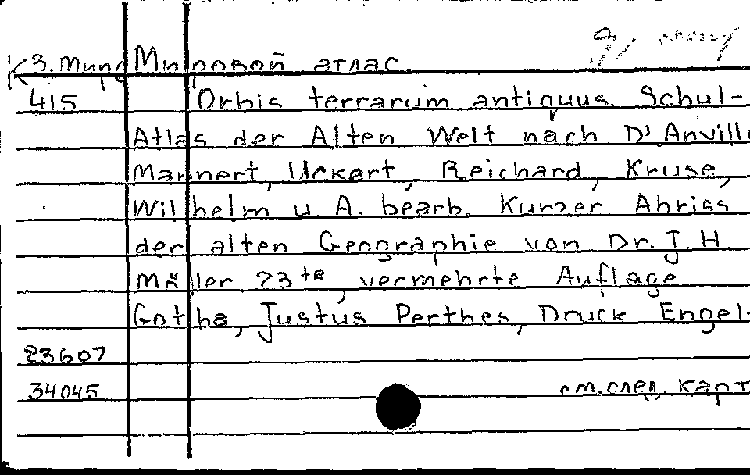 3. Мир Мировой атлас.
415 Orbis terrarum antiquus Schul-
Atlas der Alten Welt nach D'Anville
Mannert, Uckert, Reichard, Kruse,
Wilhelm u. A. bearb. Kurzer Abriss
der alten Geographie von Dr. J. H.
Möller 23te, vermehrte Auflage
Gotha, Justus Perthes, Druck Engel-
23607
34045 см. след. карт